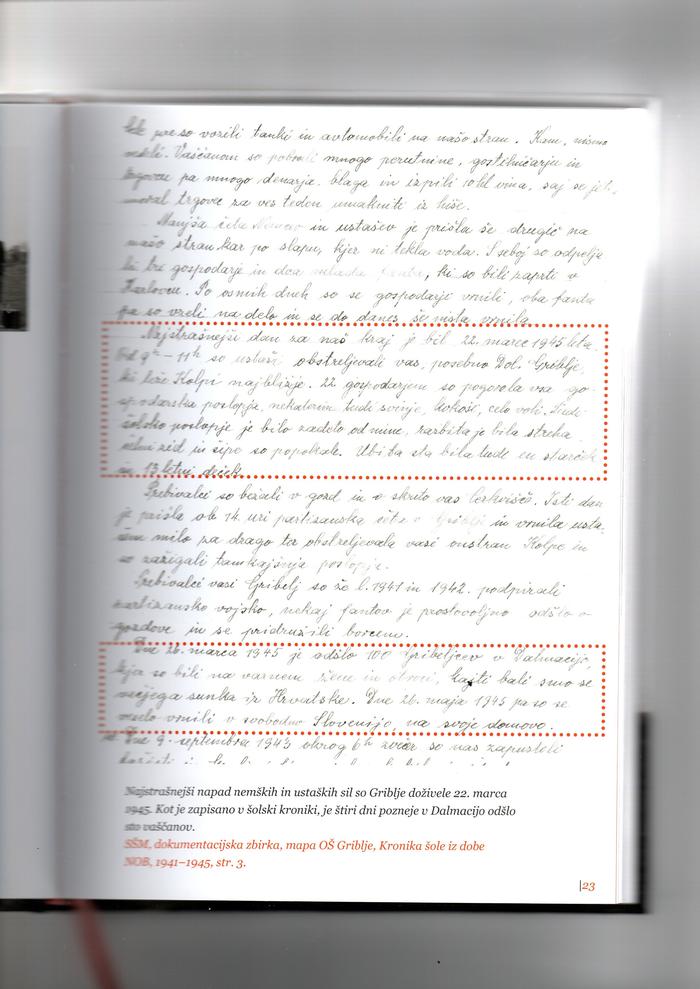 so vozili tanki in avtomobili na našo stran. Kam, nismo
vedeli. Vaščanom so pobrali mnogo perutnine, gostilničarju in
trgovcu pa mnogo denarja, blaga in izpili 10 hl vina, saj se je t.
moral trgovec za ves teden umakniti iz hiše.
Manjša četa Nemcev in ustašev je prišla še drugič na
našo stran kar po slapu, kjer ni tekla voda. S seboj so odpelja
li tri gospodarje in dva mlada fanta, ki so bili zaprti v
Karlovcu. Po osmih dneh so se gospodarji vrnili, oba fanta
pa so vzeli na delo in se do danes še nista vrnila.
Najstrašnejši dan za naš kraj je bil 22. marec 1945 leta.
Od 9h - 11h so ustaši obstreljevali vas, posebno Dol. Griblje,
ki leže Kolpi najbližje. 22 gospodarjem so pogorela vsa go-
spodarska poslopja, nekaterim tudi svinje, kokoši, celo voli. Tudi
šolsko poslopje je bilo zadeto od mine, razbita je bila streha,
zid in šipe so popokale. Ubita sta bila tudi en starček
in 13 letni deček.
Prebivalci so bežali v gozd in v skrito vas Cerkvišče. Isti dan
je prišla ob 14. uri partizanska četa v Griblje in vrnila usta-
šem milo za drago ter obstreljevala vasi onstran Kolpe in
so zažigali tamkajšnja poslopja.
Prebivalci vasi Gribelj so že l. 1941 in 1942. podpirali
partizansko vojsko, nekaj fantov je prostovoljno odšlo v
gozdove in se pridružili borcem.
Dne 26. marca 1945 je odšlo 100 Gribeljcev v Dalmacijo,
kjer so bili na varnem žene in otroci, kajti bali smo se
večjega sunka iz Hrvatske. Dne 26. maja 1945 pa so se
veselo vrnili v svobodno Slovenijo, na svoje domove.
Dne 9. septembra 1943 okrog 6h zvečer so nas zapustili
Najstrašnejši napad nemških in ustaških sil so Griblje doživele 22. marca
1945. Kot je zapisano v šolski kroniki, je štiri dni pozneje v Dalmacijo odšlo
sto vaščanov.
SŠM, dokumentacijska zbirka, mapa OŠ Griblje, Kronika šole iz dobe
NOB, 1941–1945, str. 3.
|23